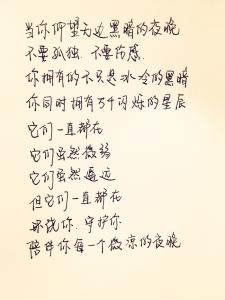 当你仰望无边黑暗的夜晚
不要孤独.不要伤感.
你拥有的不只是冰冷的黑暗
你同时拥有万千闪烁的星辰
它们一直都在
它们虽然微弱
它们虽然遥远
但它们一直都在
环绕你.守护你
陪伴你每一个微凉的夜晚